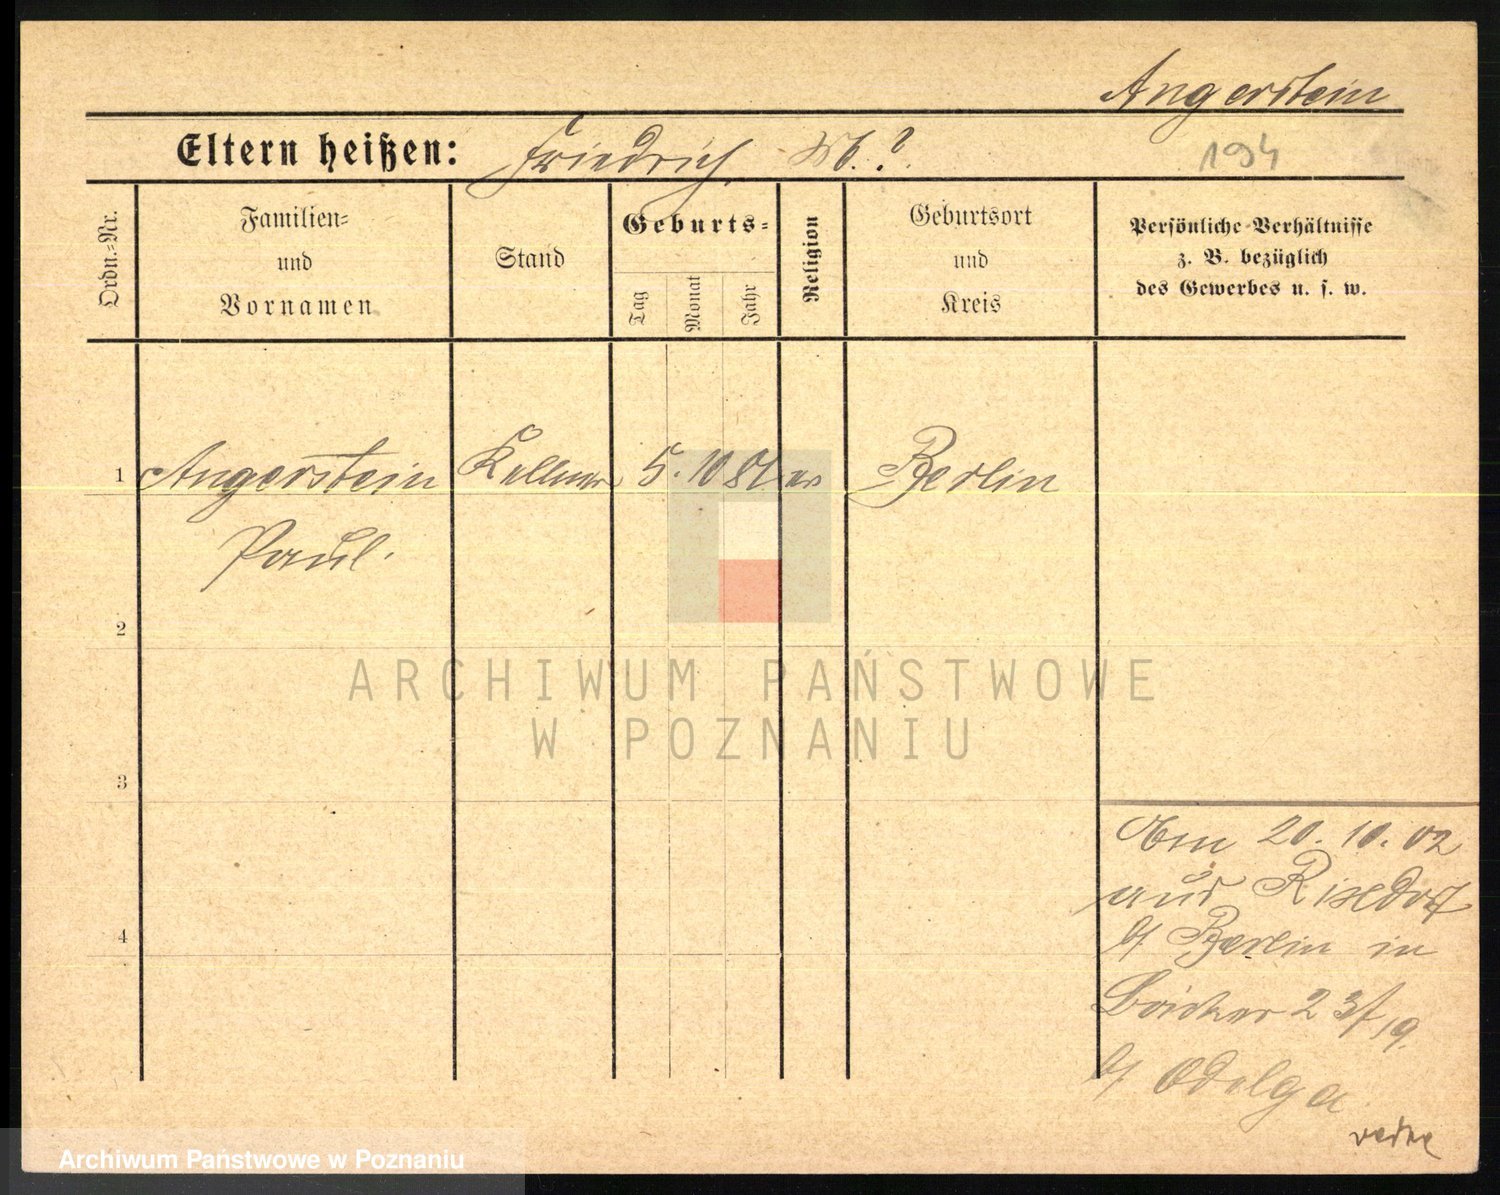 Angerstein
Eltern heißen: Friedrich
194
Ordn.-Nr.
Familien-
und
Vornamen
Stand
Geburts-
Tag
Monat
Jahr
Religion
Geburtsort
und
Kreis
Persönliche Verhältnisse
z. B. bezüglich
des Gewerbes u. s. w.
1 Angerstein Kellner 5. 10 81 ev Berlin
Paul.
2
3
4
20. 10. 02
aus Rixdorf
b/ Berlin in
b/ Odelga
ARCHIWUM PAŃSTWOWE
W POZNANIU
Archiwum Państwowe w Poznaniu